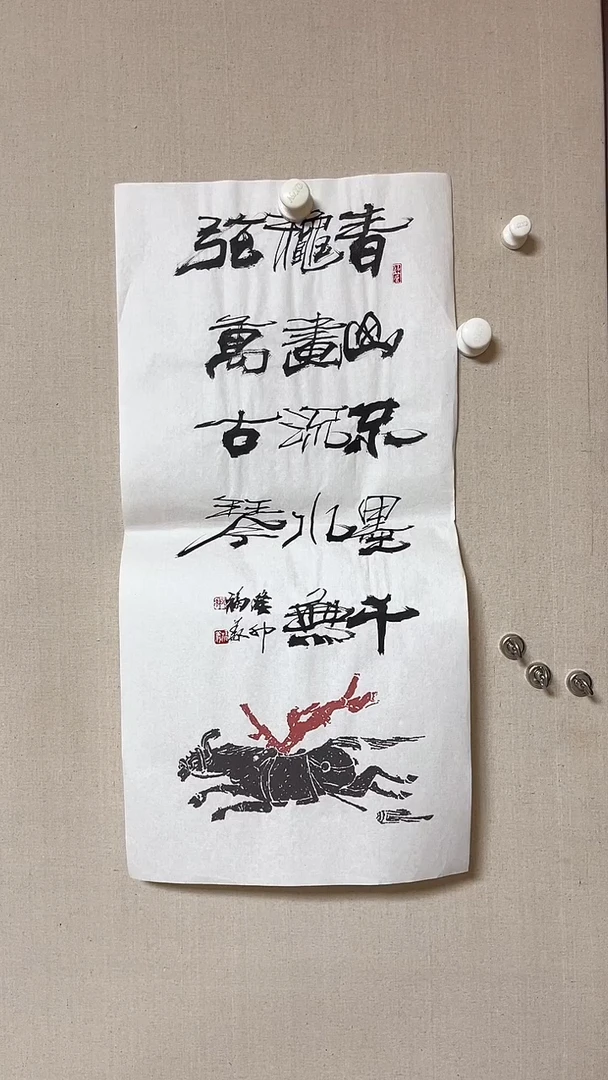 青山不墨千
龝畫流水無
弦萬古琴
癸卯
福